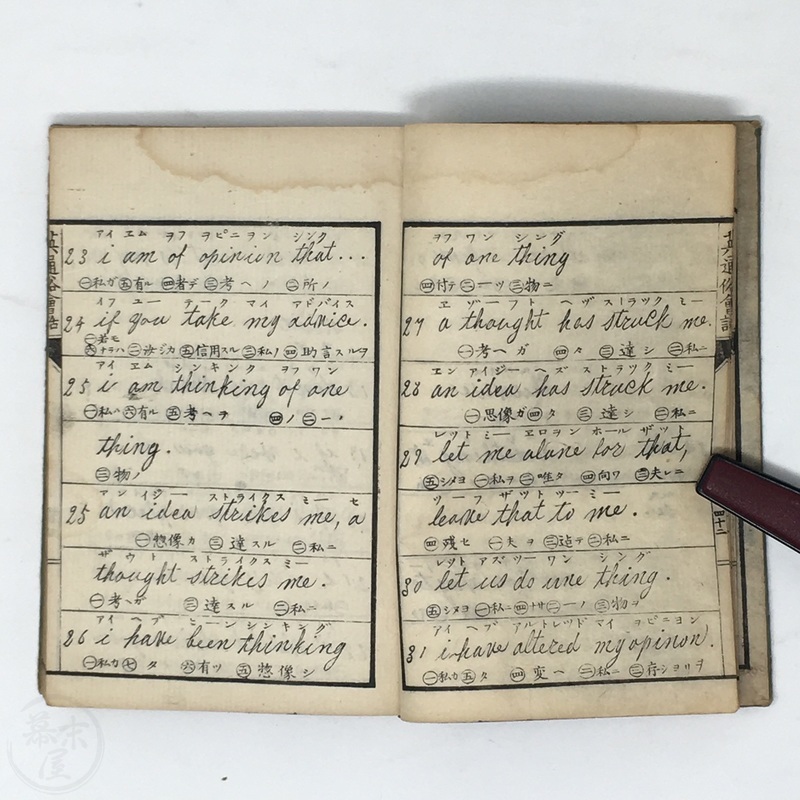 英通俗會話
アイ エム ヲフ ヲピニヲン シンク
23 i am of opinion that...
㊀私ガ ㊄有ル ㊃者デ ㊂考ヘノ ㊀所ノ
イフ ユー テーク マイ アドバイス
24 if you take my advice.
㊀若モ
㊅ナラハ ㊁汝ジカ ㊄信用スル ㊂私ノ ㊃助言スルヲ
アイ エム シンキング ヲフ ワン
25 i am thinking of one
㊀私ハ ㊅有ル ㊄考ヘヲ ㊃ノ ㊁一ノ
thing.
㊂物ノ
アン イジー ストライクス ミー セ
25 an idea strikes me, a
㊀惣像カ ㊂達スル ㊁私ニ
ザウト ストライクス ミー
thought strikes me.
㊀考ヘガ ㊂達スル ㊁私ニ
アイ ヘブ ミーン シンキング
26 i have been thinking
㊀私カ ㊆タ ㊅有ツ ㊄惣像シ
英通俗會話
ヲフ ワン シング
of one thing
㊃付テ ㊁一ツ ㊂物ニ
エ ゾーフト ヘヅ ストラツク ミー
27 a thought has struck me.
㊀考ヘガ ㊃タ ㊂達シ ㊁私ニ
エン アイジー ヘズ ストラツク ミー
28 an idea has struck me.
㊀思像ガ ㊃タ ㊂達シ ㊁私ニ
レツト ミー エロヲン ホール ザツト
29 let me alone for that,
㊄シメヨ ㊀私ヲ ㊁唯タ ㊃向ワ ㊂夫レニ
リーフ ザツト ツー ミー
leave that to me.
㊃残セ ㊀夫ヲ ㊂迠テ ㊁私ニ
四十二
レツト アズ ツー ワン シング
30 let us do une thing.
㊄シメヨ ㊀私ニ ㊃ナサ ㊁一ノ ㊂物ヲ
アイ ヘブ アルトレツド マイ ヲピニヨン
31 i have altered my opinon.
㊀私カ ㊄タ ㊃変ヘ ㊁私ニ ㊂存シヨリヲ
幕末屋